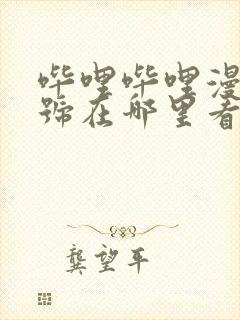 哔哩哔哩漫
號在哪里看
龚望平